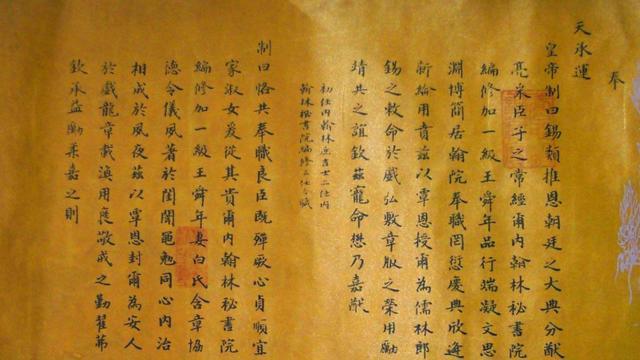 奉
天承運
皇帝制曰錫類推恩朝廷之大典分猷
亮采臣子之常經爾內翰林秘書院
編修加一級王舜年品行端凝文思
淵博簡居翰院奉職罔愆慶典欣逢
新綸用賁茲以覃恩授爾為儒林郎
錫之敕命於戲弘敷章服之榮用勵
靖共之誼欽茲寵命懋乃嘉猷
初任內翰林庶吉士二任內
翰林秘書院編修三任今職
制曰恪共奉職良臣既殫厥心貞順宜
家淑女爰從其貴爾內翰林秘書院
編修加一級王舜年妻白氏含章協
德令儀夙著於閨閫黽勉同心內治
相成於夙夜茲以覃恩封爾為安人
於戲龍章載渙用褒敬戒之勤翟茀
欽承益勵柔嘉之則